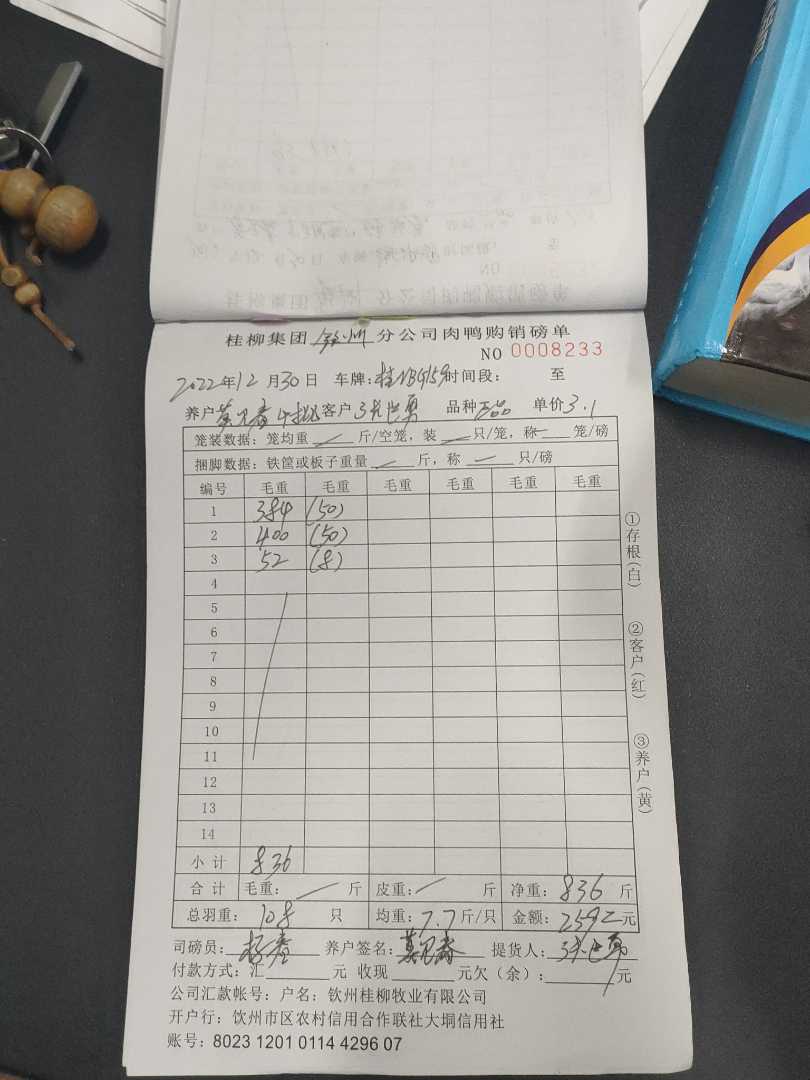 桂柳集团 钦州 分公司肉鸭购销磅单
NO 0008233
2022年12月30日 车牌:桂NBG159 时间段: 至
养户 4批 客户 张 勇 品种 品 单价 3.1
笼装数据: 笼均重 — 斤/空笼, 装 — 只/笼, 称 — 笼/磅
捆脚数据: 铁筐或板子重量 — 斤, 称 — 只/磅
编号 毛重 毛重 毛重 毛重 毛重 毛重
1 384 (50)
2 400 (50)
3 52 (8)
4
5
6
7
8
9
10
11
12
13
14
小计 836
合计 毛重: — 斤 皮重: — 斤 净重: 836 斤
总羽重: 108 只 均重: 7.7 斤/只 金额: 2592 元
司磅员: 杨 养户签名: 提货人: 张 勇
付款方式: 汇 元 收现 元欠(余): 元
公司汇款帐号: 户名: 钦州桂柳牧业有限公司
开户行: 饮州市区农村信用合作联社大垌信用社
账号: 8023 1201 0114 4296 07
①存根(白)
②客户(红)
③养户(黄)